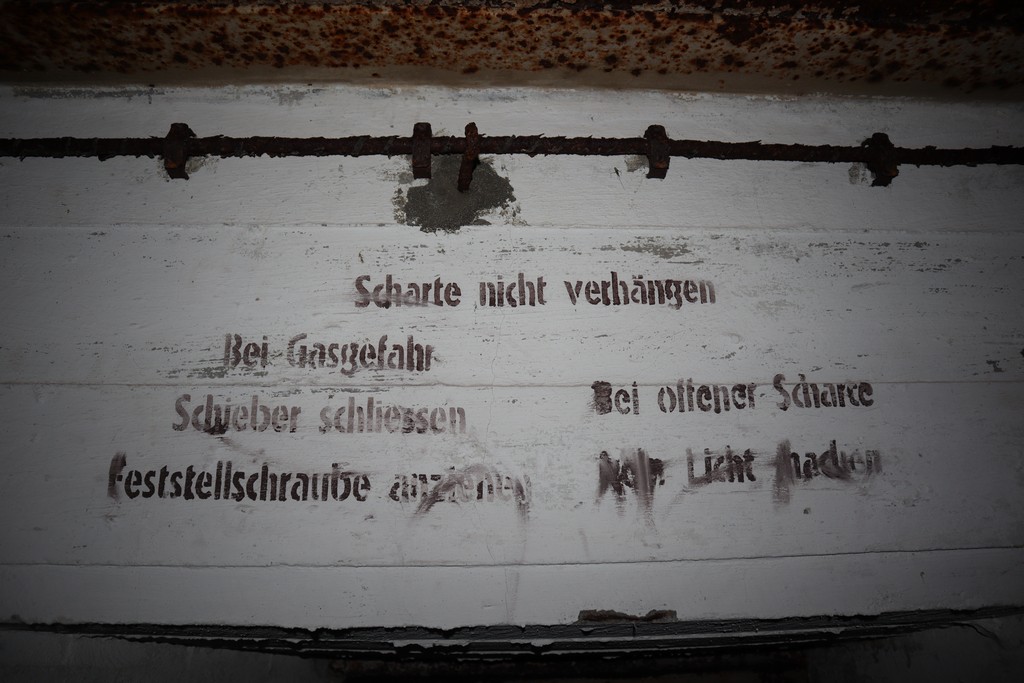 Scharte nicht verhängen
Bei Gasgefahr
Schieber schliessen
Feststellschraube anziehen
Bei offener Scharte
Kein Licht machen